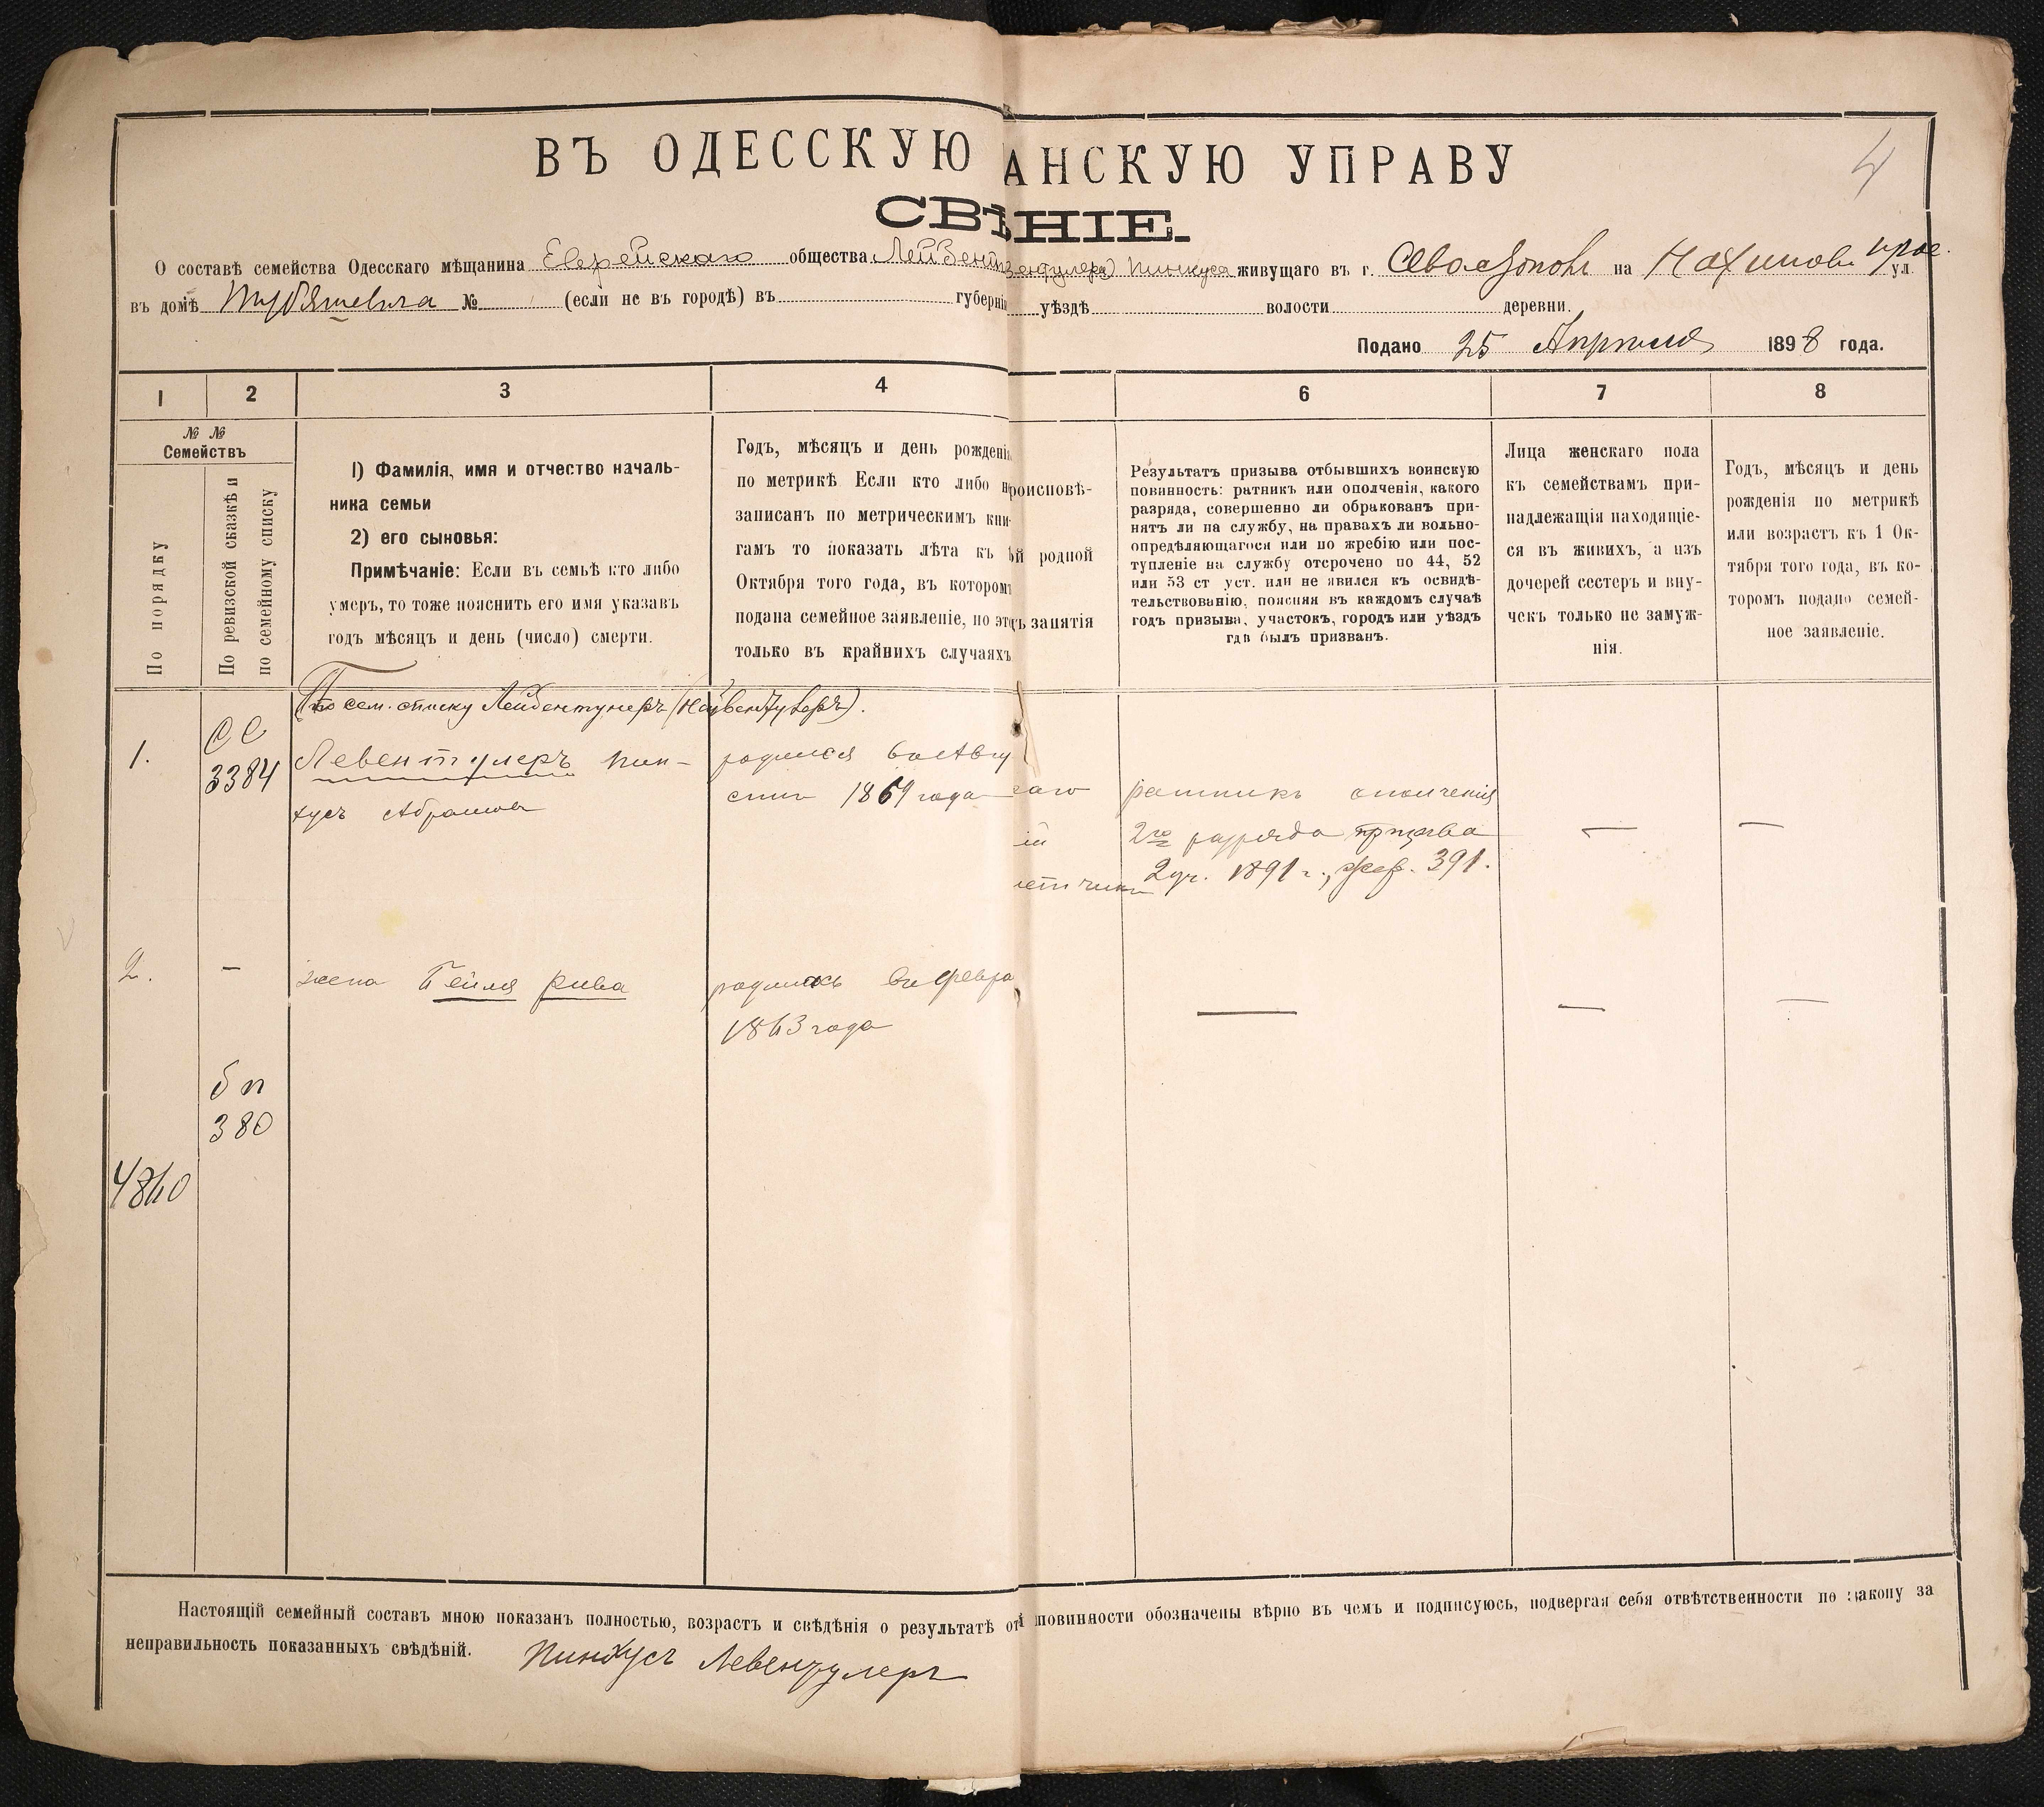 ВЪ ОДЕССКУЮ АНСКУЮ УПРАВУ
4
СВѢНІЕ.
О составѣ семейства Одесскаго мѣщанина Еврейскаго общества Пинкуса живущаго въ г. Севастополѣ на Нахимов. прос. ул.
въ домѣ № (если не въ городѣ) въ губерні уѣздѣ волости деревни.
Подано 25 Апрѣля 1898 года.
1 2 3 4 6 7 8
№ №
Семействъ
По порядку
По ревизской сказкѣ и
по семейному списку
1) Фамилія, имя и отчество началь-
ника семьи
2) его сыновья:
Примѣчаніе: Если въ семьѣ кто либо
умеръ, то тоже пояснить его имя указавъ
годъ мѣсяцъ и день (число) смерти.
Годъ, мѣсяцъ и день рожденія
по метрикѣ Если кто либо н
записанъ по метрическимъ кни-
гамъ то показать лѣта къ
Октября того года, въ котором
подана семейное заявленіе, но это
только въ крайнихъ случаяхъ
роисповѣ-
й родной
ъ занятія
Результатъ призыва отбывшихъ воинскую
повинность: ратникъ или ополченія, какого
разряда, совершенно ли обракованъ при-
нятъ ли на службу, на правахъ ли вольно-
опредѣляющагося или по жребію или пос-
тупленіе на службу отсрочено по 44, 52
или 53 ст уст. или не явился къ освидѣ-
тельствованію, поясняя въ каждомъ случаѣ
годъ призыва, участокъ, городъ или уѣздъ
гдѣ былъ призванъ.
Лица женскаго пола
къ семействамъ при-
надлежащія находящіе-
ся въ живихъ, а изъ
дочерей сестеръ и вну-
чекъ только не замуж-
нія.
Годъ, мѣсяцъ и день
рожденія по метрикѣ
или возрастъ къ 1 Ок-
тября того года, въ ко-
торомъ подано семей-
ное заявленіе.
По сем. списку
1.
СС
3384
Левентулеръ Пин-
кусъ Абрамов
родился в Авгу
стѣ 1869 года
каго
ій
ратникъ ополченія
2го разряда призыва
2 уч. 1891 г., жер. 391.
— —
2. –
жена Бейля Рива
родилась въ Февра
1863 года
— — —
б п
380
4860
Настоящій семейный составъ мною показанъ полностью, возрастъ и свѣдѣнія о результатѣ от повинности обозначены вѣрно въ чемъ и подписуюсь, подвергая себя отвѣтственности по закону за
неправильность показанныхъ свѣдѣній.
Пинхусъ Левентулеръ